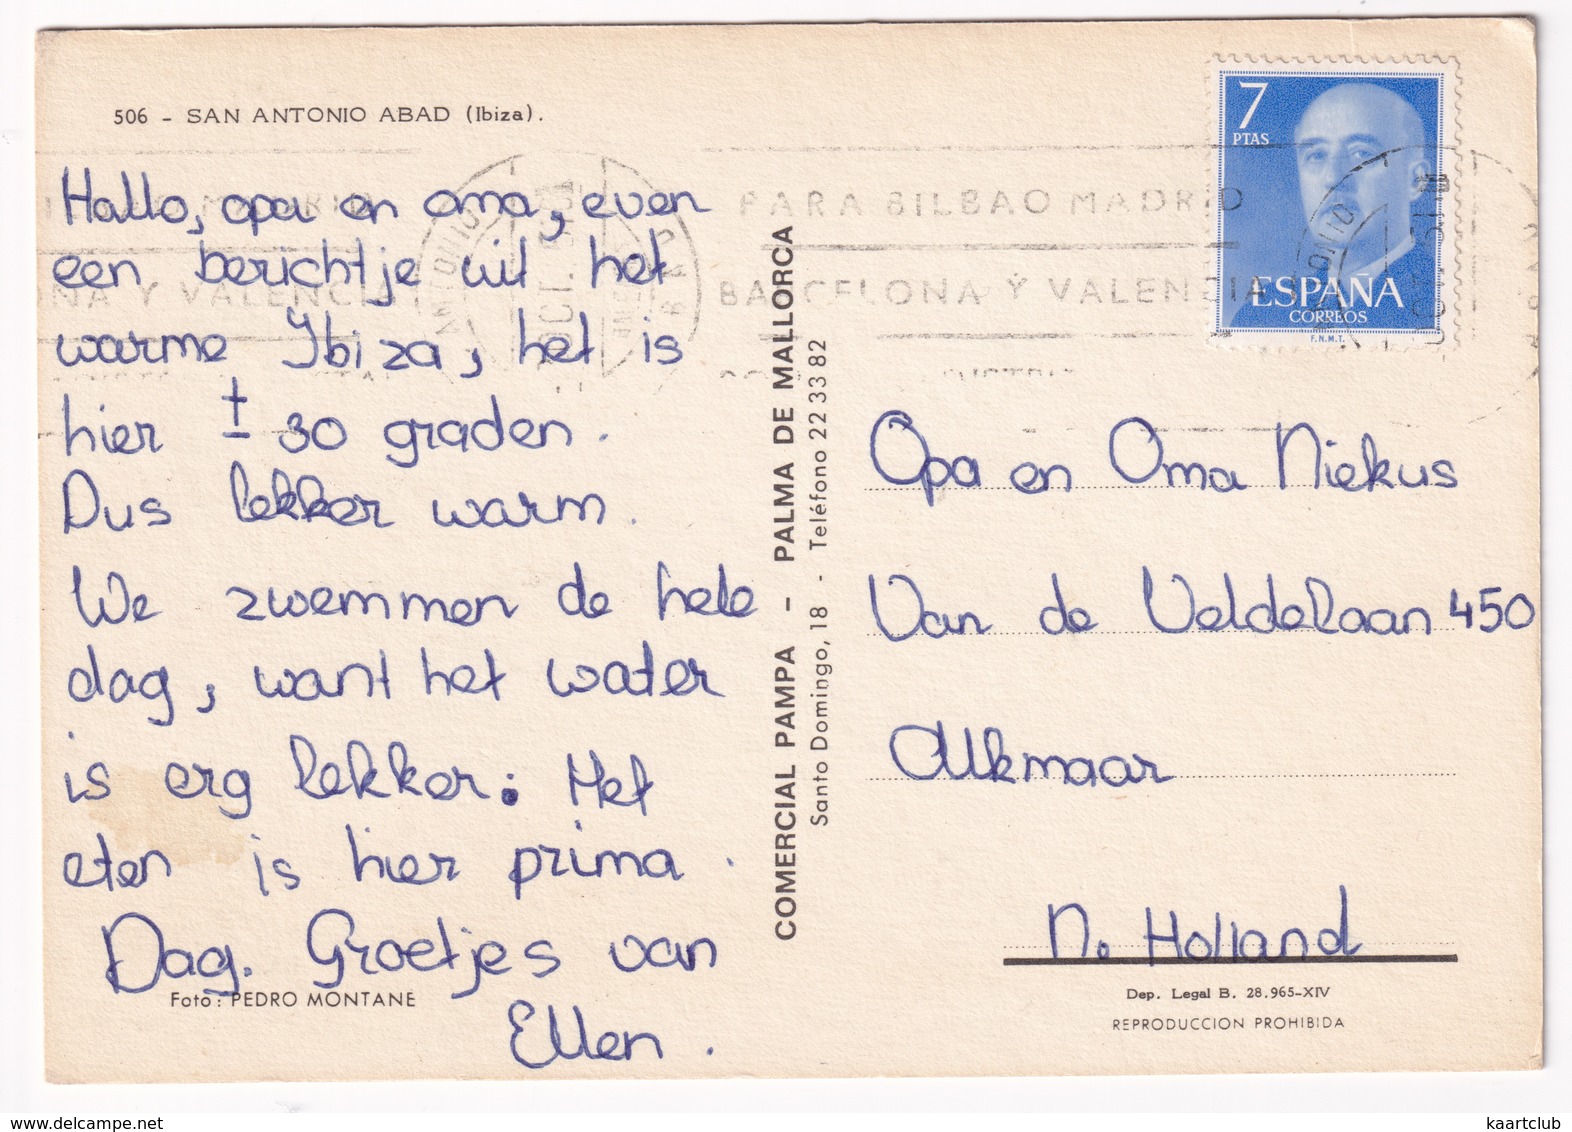 506 - SAN ANTONIO ABAD (Ibiza).
Hallo, opa en oma, even
een berichtje uit het
warme Ibiza, het is
hier ± 30 graden.
Dus lekker warm.
We zwemmen de hele
dag, want het water
is erg lekker. Het
eten is hier prima.
Dag. Groetjes van
Ellen.
Foto: PEDRO MONTANE
COMERCIAL PAMPA - PALMA DE MALLORCA
Santo Domingo, 18 - Teléfono 22 33 82
PARA BILBAO MADRID
BARCELONA Y VALENCIA
7
PTAS
ESPAÑA
CORREOS
F.N.M.T.
Opa en Oma Niekus
Van de Veldelaan 450
Alkmaar
N. Holland
Dep. Legal B. 28.965-XIV
REPRODUCCION PROHIBIDA
kaartclub